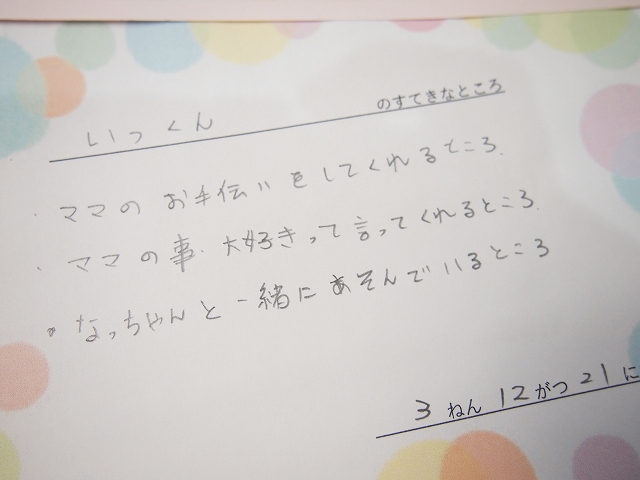 いっくん のすてきなところ
・ママのお手伝いをしてくれるところ.
・ママの事、大好きって言ってくれるところ.
・なっちゃんと一緒にあそんでいるところ
3ねん12がつ21に